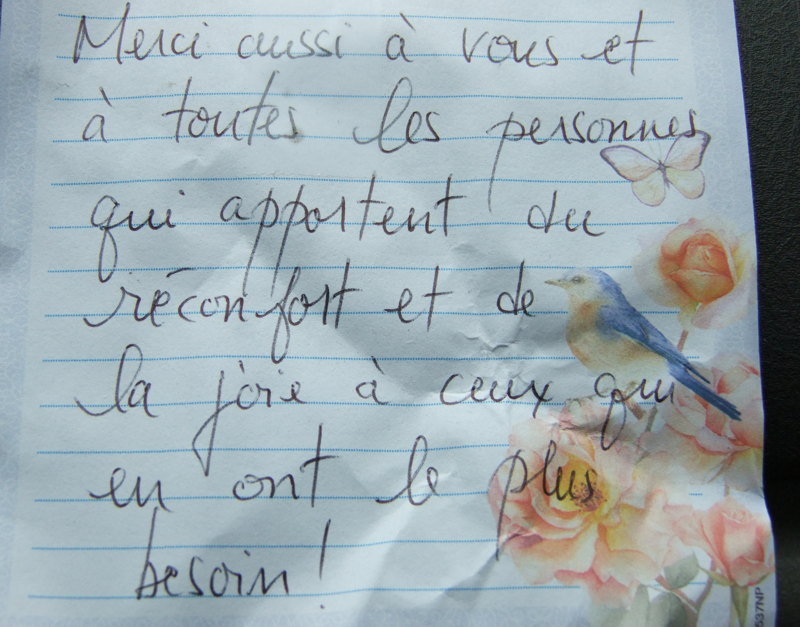 Merci aussi à vous et
à toutes les personnes
qui apportent du
réconfort et de
la joie à ceux qui
en ont le plus
besoin !
537NP